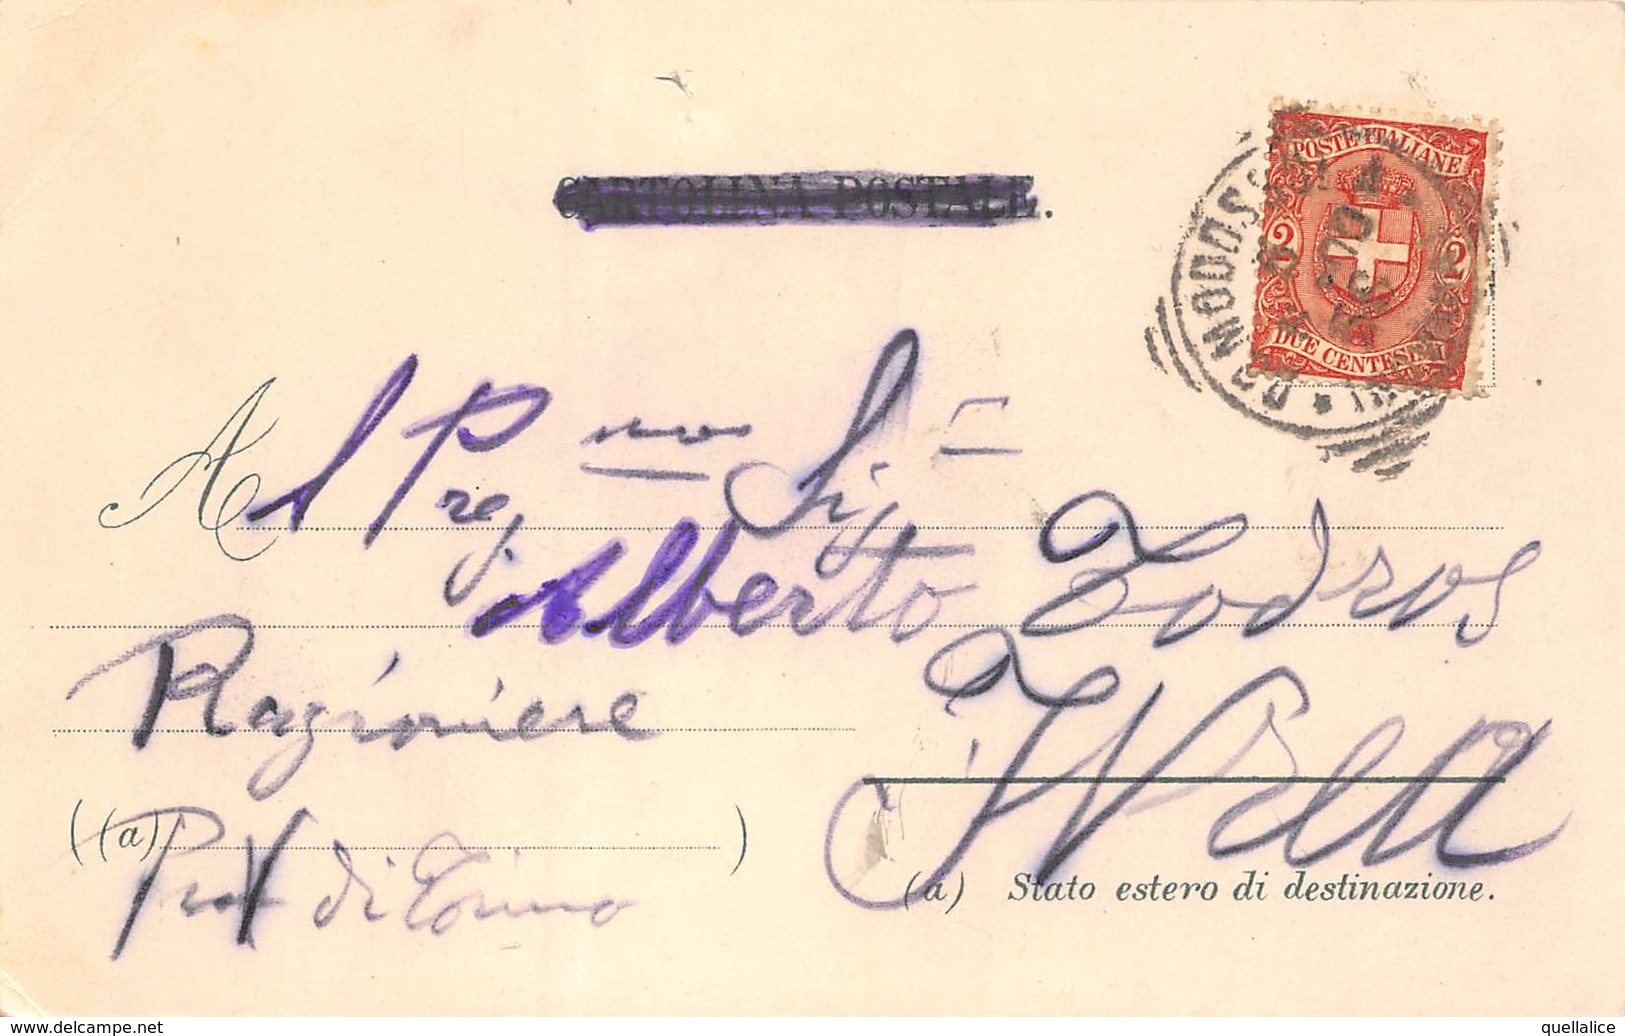 CARTOLINA POSTALE.
POSTE ITALIANE
2 2
DUE CENTESIMI
DOMODOSSOLA
Al Preg.mo Sigr
Alberto Todros
Ragioniere
Ivrea
(a) Prov di Torino )
(a) Stato estero di destinazione.
www.delcampe.net
quellalice